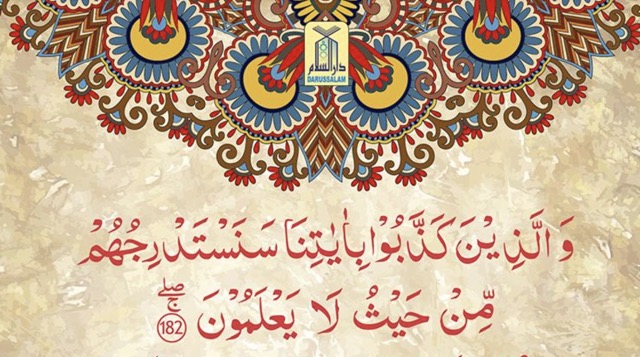 دارالسلام
DARUSSALAM
وَالَّذِيْنَ كَذَّبُوْا بِاٰيٰتِنَا سَنَسْتَدْرِجُهُمْ
مِّنْ حَيْثُ لَا يَعْلَمُوْنَ ۚۖ 182